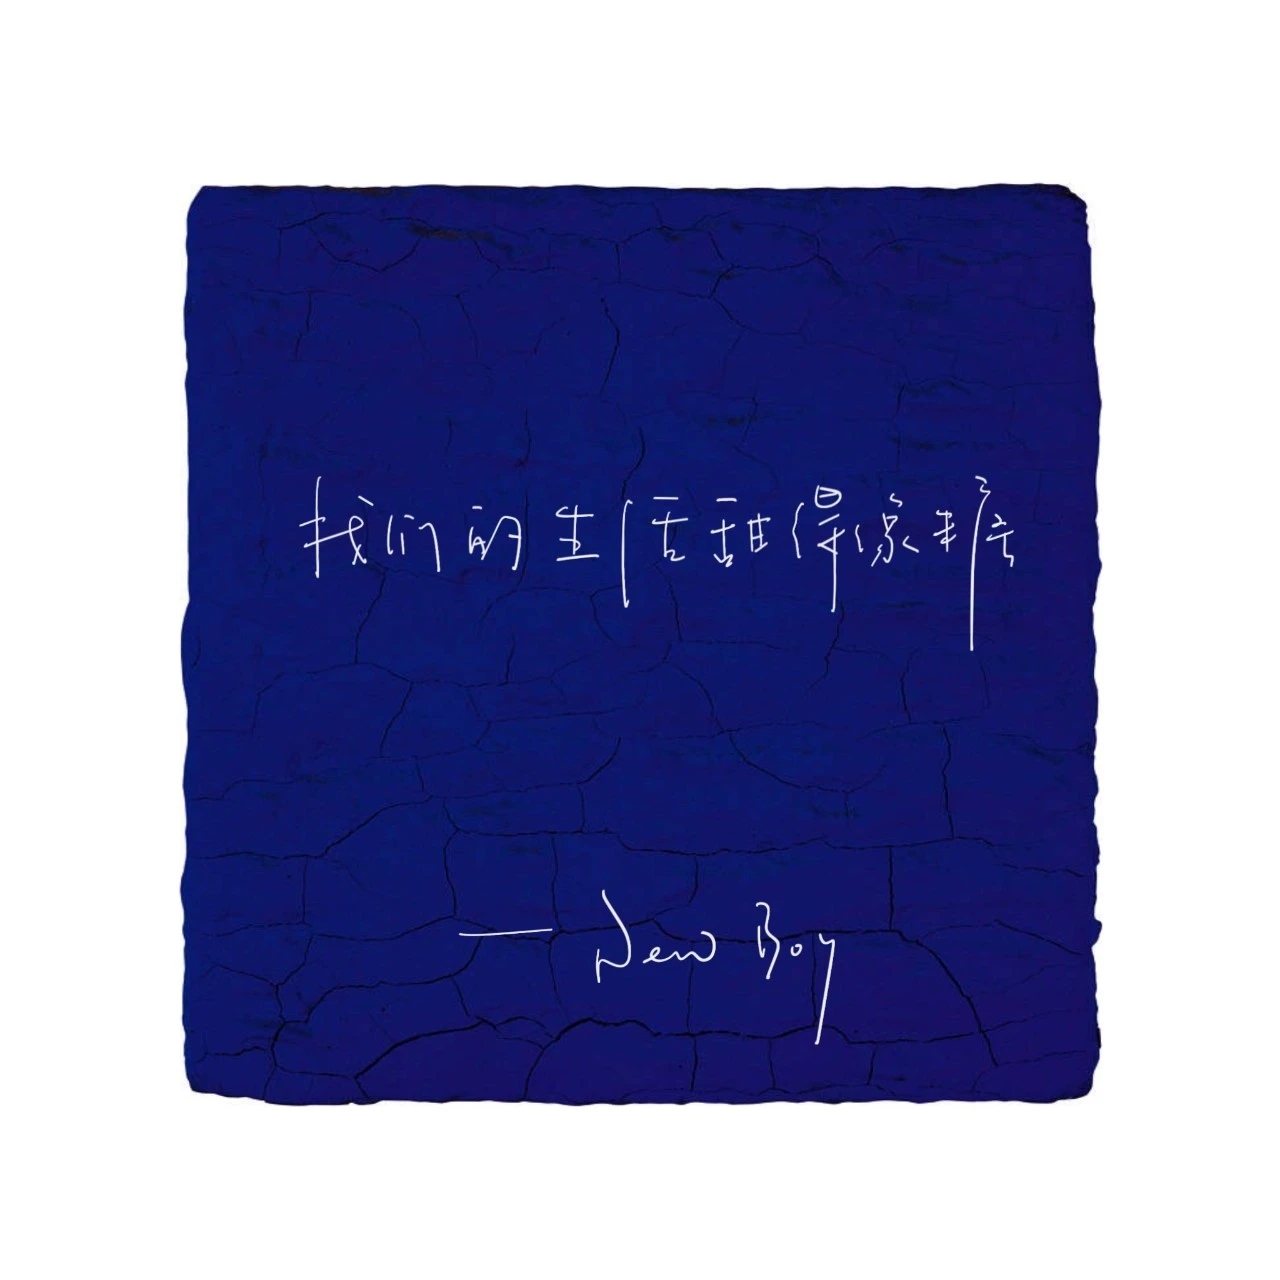 我们的生活甜得像糖
— New Boy